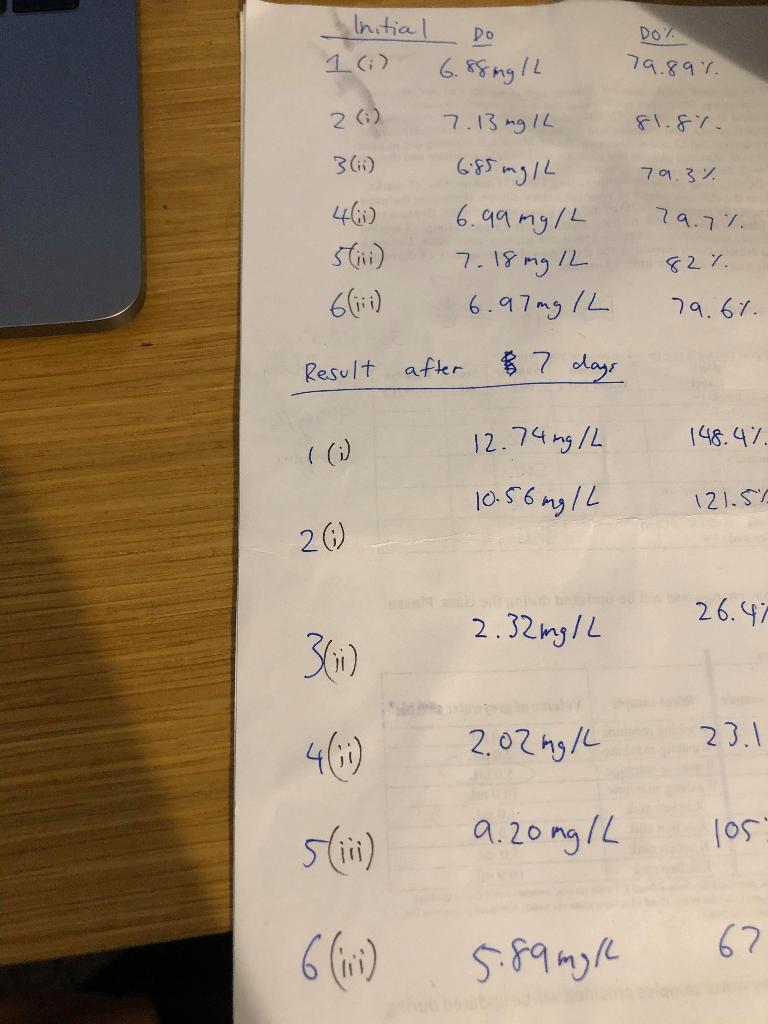 Initial DO DO%
1 (i) 6.88mg/L 79.89%
2 (i) 7.13 mg/L 81.8%
3(ii) 6.85 mg/L 79.3%
4(ii) 6.99 mg/L 79.7%
5(iii) 7.18 mg/L 82%
6(iii) 6.97mg/L 79.6%
Result after 7 days
1 (i) 12.74mg/L 148.4%
2(i) 10.56mg/L 121.5%
3(ii) 2.32mg/L 26.4%
4(ii) 2.02mg/L 23.1
5(iii) 9.20mg/L 105%
6(iii) 5.89mg/L 67